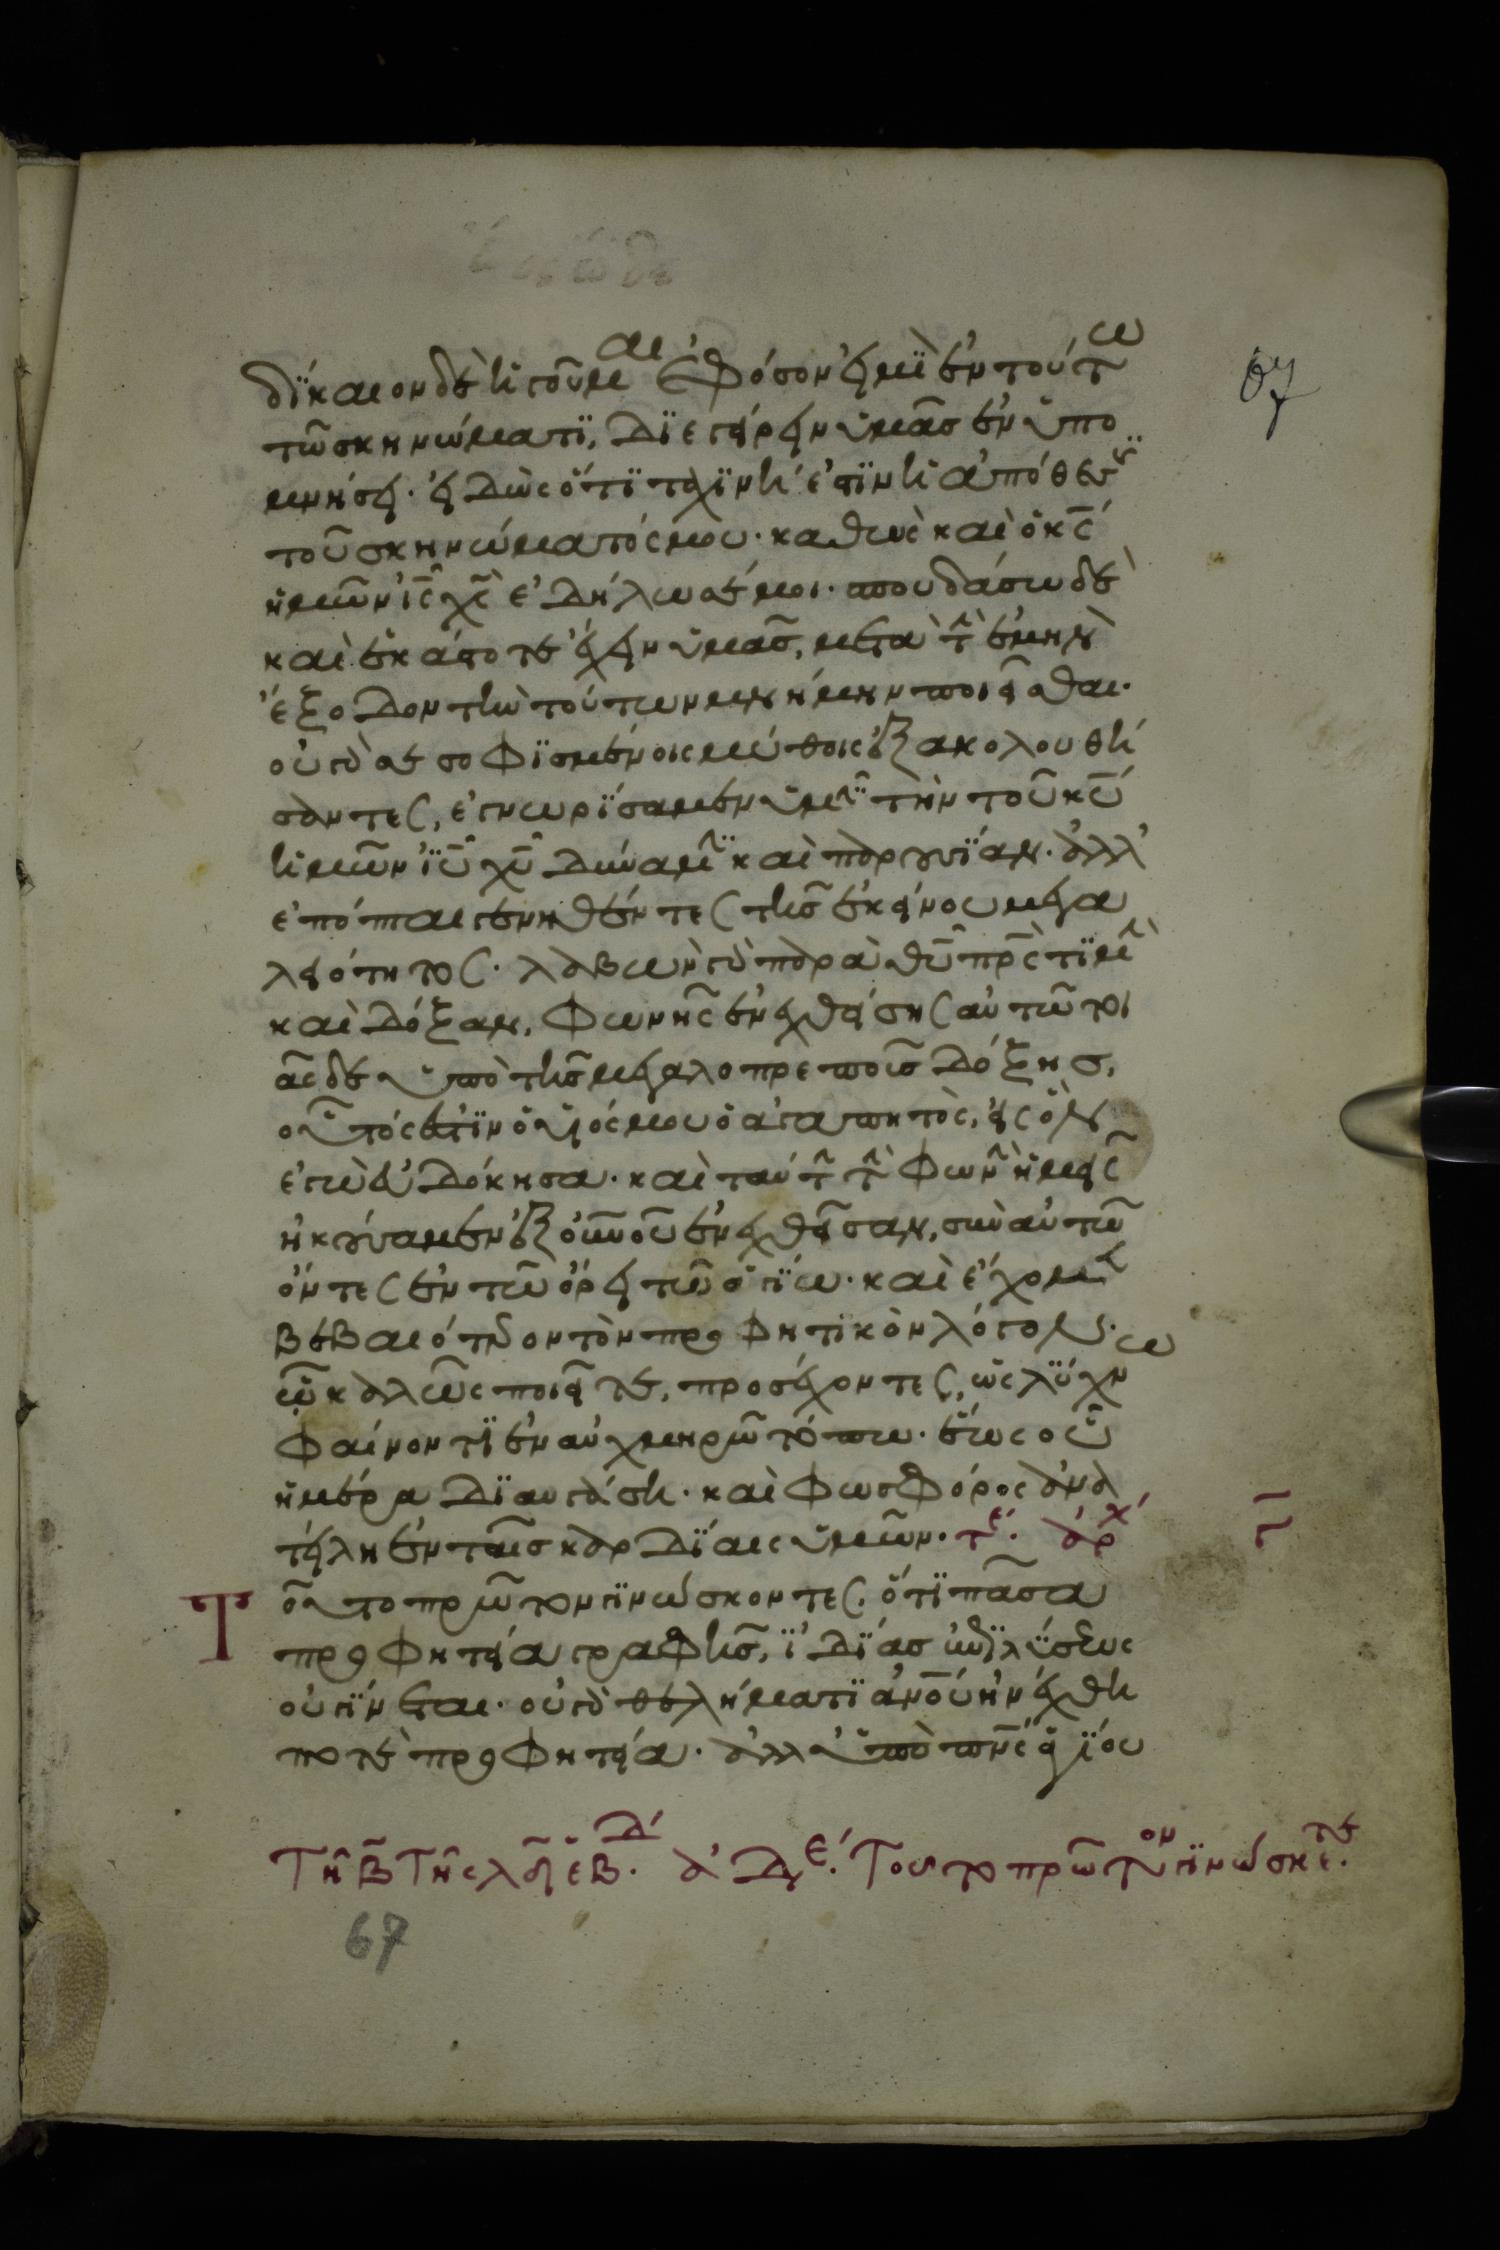 67
δίκαιον δὲ ἡγοῦμαι ἐφ' ὅσον εἰμὶ ἐν τούτω
τῶ σκηνώματι, διεγείρειν ὑμᾶς ἐν ὑπο
μνήσει· εἰδὼς ὅτι ταχινή ἐστιν ἡ ἀπόθεσις
τοῦ σκηνώματός μου· καθὼς καὶ ὁ κς
ἡμῶν ις χς ἐδήλωσέ μοι· σπουδάσω δὲ
καὶ ἑκάστοτε ἔχειν ὑμᾶς, μετὰ τὴν ἐμὴν
ἔξοδον τὴν τούτων μνήμην ποιεῖσθαι·
οὐ γὰρ σεσοφισμένοις μύθοις ἐξακολουθή
σαντες, ἐγνωρίσαμεν ὑμῖν τὴν τοῦ κυ
ἡμῶν ιυ χυ δύναμιν καὶ παρουσίαν· ἀλλ'
ἐπόπται γενηθέντες τῆς ἐκείνου μεγα
λειότητος· λαβὼν γὰρ παρὰ θυ πρς τιμὴν
καὶ δόξαν, φωνῆς ἐνεχθείσης αὐτῶ τοι
ᾶσδε ὑπὸ τῆς μεγαλοπρεποῦς δόξης,
οὗτός ἐστιν ὁ υἱός μου ὁ ἀγαπητὸς, εἰς ὃν
ἐγὼ εὐδόκησα· καὶ ταύτην τὴν φωνὴν ἡμεῖς
ἠκούσαμεν ἐξ οὐνοῦ ἐνεχθεῖσαν, σὺν αὐτῶ
ὄντες ἐν τῶ ὄρει τῶ ἁγίω· καὶ ἔχομεν
βεβαιότερον τὸν προφητικὸν λόγον·
ὧ καλῶς ποιεῖτε, προσέχοντες, ὡς λύχνω
φαίνοντι ἐν αὐχμηρῶ τόπω· ἕως οὗ
ἡμέρα διαυγάση· καὶ φωσφόρος ἀνα
τείλη ἐν ταῖς καρδίαις ὑμῶν· τε. ἀρχ
Τοῦτο πρῶτον γινώσκοντες. ὅτι πᾶσα
προφητεία γραφῆς, ἰδίας ἐπιλύσεως
οὐ γίνεται· οὐ γὰρ θελήματι ἀνου ἠνέχθη
ποτὲ προφητεία· ἀλλ' ὑπὸ πνς ἁγίου
Τῆ β τῆς λϛ εβδ. ἀδε. Τοῦτο πρῶτον γινώσκετε.
67